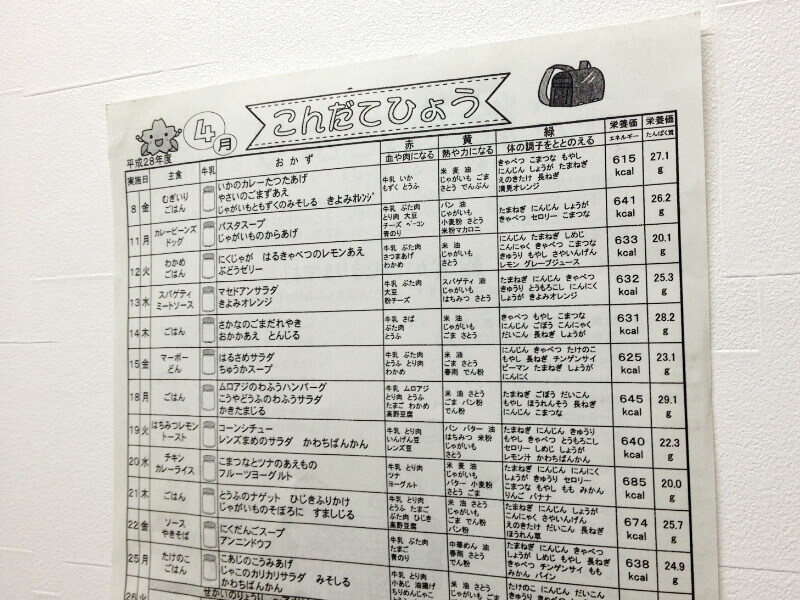 4月
こんだてひょう
平成28年度
実施日 主食 牛乳 おかず 赤 血や肉になる 黄 熱や力になる 緑 体の調子をととのえる 栄養価 エネルギー 栄養価 たんぱく質
8 金 むぎいり ごはん
いかのカレーたつたあげ
やさいのごまずあえ
じゃがいもともずくのみそしる きよみオレンジ
牛乳 いか
もずく とうふ
米 麦 油
じゃがいも ごま
さとう でんぷん
きゃべつ こまつな もやし
にんじん しょうが たまねぎ
えのきたけ 長ねぎ
清見オレンジ
615 kcal
27.1 g
11 月 カレービーンズ ドッグ
パスタスープ
じゃがいものからあげ
牛乳 ぶた肉
とり肉 大豆
チーズ ベーコン
青のり
パン 油
じゃがいも
小麦粉 さとう
米粉マカロニ
たまねぎ にんじん しょうが
きゃべつ セロリー こまつな
641 kcal
26.2 g
12 火 わかめ ごはん
にくじゃが はるきゃべつのレモンあえ
ぶどうゼリー
牛乳 ぶた肉
さつまあげ
わかめ
米 油
じゃがいも
さとう
にんじん たまねぎ しめじ
こんにゃく きゃべつ こまつな
きゅうり もやし さやいんげん
レモン グレープジュース
633 kcal
20.1 g
13 水 スパゲティ ミートソース
マセドアンサラダ
きよみオレンジ
牛乳 ぶた肉
大豆
粉チーズ
スパゲティ 油
じゃがいも
はちみつ さとう
たまねぎ にんじん きゃべつ
きゅうり とうもろこし にんにく
しょうが きよみオレンジ
632 kcal
25.3 g
14 木 ごはん
さかなのごまだれやき
おかかあえ とんじる
牛乳 さば
ぶた肉
とうふ
米 油
じゃがいも
ごま さとう
きゃべつ もやし こまつな
にんじん ごぼう こんにゃく
だいこん 長ねぎ しょうが
631 kcal
28.2 g
15 金 マーボー どん
はるさめサラダ
ちゅうかスープ
牛乳 ぶた肉
とうふ とり肉
わかめ
米 油
ごま さとう
春雨 でん粉
にんじん きゃべつ たけのこ
もやし 長ねぎ チンゲンサイ
ピーマン たまねぎ しょうが
にんにく
625 kcal
23.1 g
18 月 ごはん
ムロアジのわふうハンバーグ
こうやどうふのわふうサラダ
かきたまじる
牛乳 ムロアジ
とり肉 とうふ
たまご わかめ
高野豆腐
米 油 さとう
ごま パン粉
でん粉
たまねぎ ごぼう だいこん
もやし ほうれんそう 長ねぎ
にんじん こまつな
645 kcal
29.1 g
19 火 はちみつレモン トースト
コーンシチュー
レンズまめのサラダ かわちばんかん
牛乳 とり肉
いんげん豆
レンズ豆
パン バター 油
はちみつ 米粉
じゃがいも
さとう
たまねぎ にんじん きゅうり
もやし きゃべつ とうもろこし
セロリー しめじ しょうが
レモン汁 かわちばんかん
640 kcal
22.3 g
20 水 チキン カレーライス
こまつなとツナのあえもの
フルーツヨーグルト
牛乳 とり肉
ツナ
ヨーグルト
米 麦 油
じゃがいも
バター 小麦粉
さとう ごま
たまねぎ にんじん にんにく
しょうが きゅうり セロリー
こまつな もやし もも みかん
りんご バナナ
685 kcal
20.0 g
21 木 ごはん
とうふのナゲット ひじきふりかけ
じゃがいものそぼろに すましじる
牛乳 とり肉
とうふ たまご
ぶた肉 ひじき
高野豆腐
米 油 さとう
じゃがいも
ごま でん粉
パン粉
たまねぎ にんじん しょうが
こんにゃく さやいんげん
えのきたけ だいこん 長ねぎ
ほうれん草
674 kcal
25.7 g
22 金 ソース やきそば
にくだんごスープ
アンニンドウフ
牛乳 ぶた肉
たまご
青のり
中華めん 油
春雨 さとう
でん粉
たまねぎ にんじん きゃべつ
しょうが しめじ もやし 長ねぎ
きゃべつ チンゲンサイ もも
みかん パイン
638 kcal
24.9 g
25 月 たけのこ ごはん
こあじのこうみあげ
じゃこのカリカリサラダ みそしる
かわちばんかん
牛乳 とり肉
小あじ 油揚げ
ちりめんじゃこ
米 油 さとう
じゃがいも
たけのこ にんじん だいこん
26 火